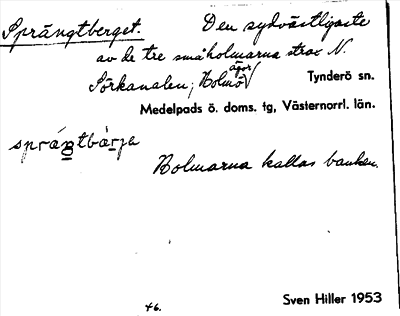 Sprängtberget. Den sydvästligaste
av de tre småholmarna strax N.
Sörkanalen; Holmö ägor Tynderö sn.
Medelpads ö. doms. tg, Västernorrl. län.
sprángtbàrja
Holmarna kallas banken.
46. Sven Hiller 1953